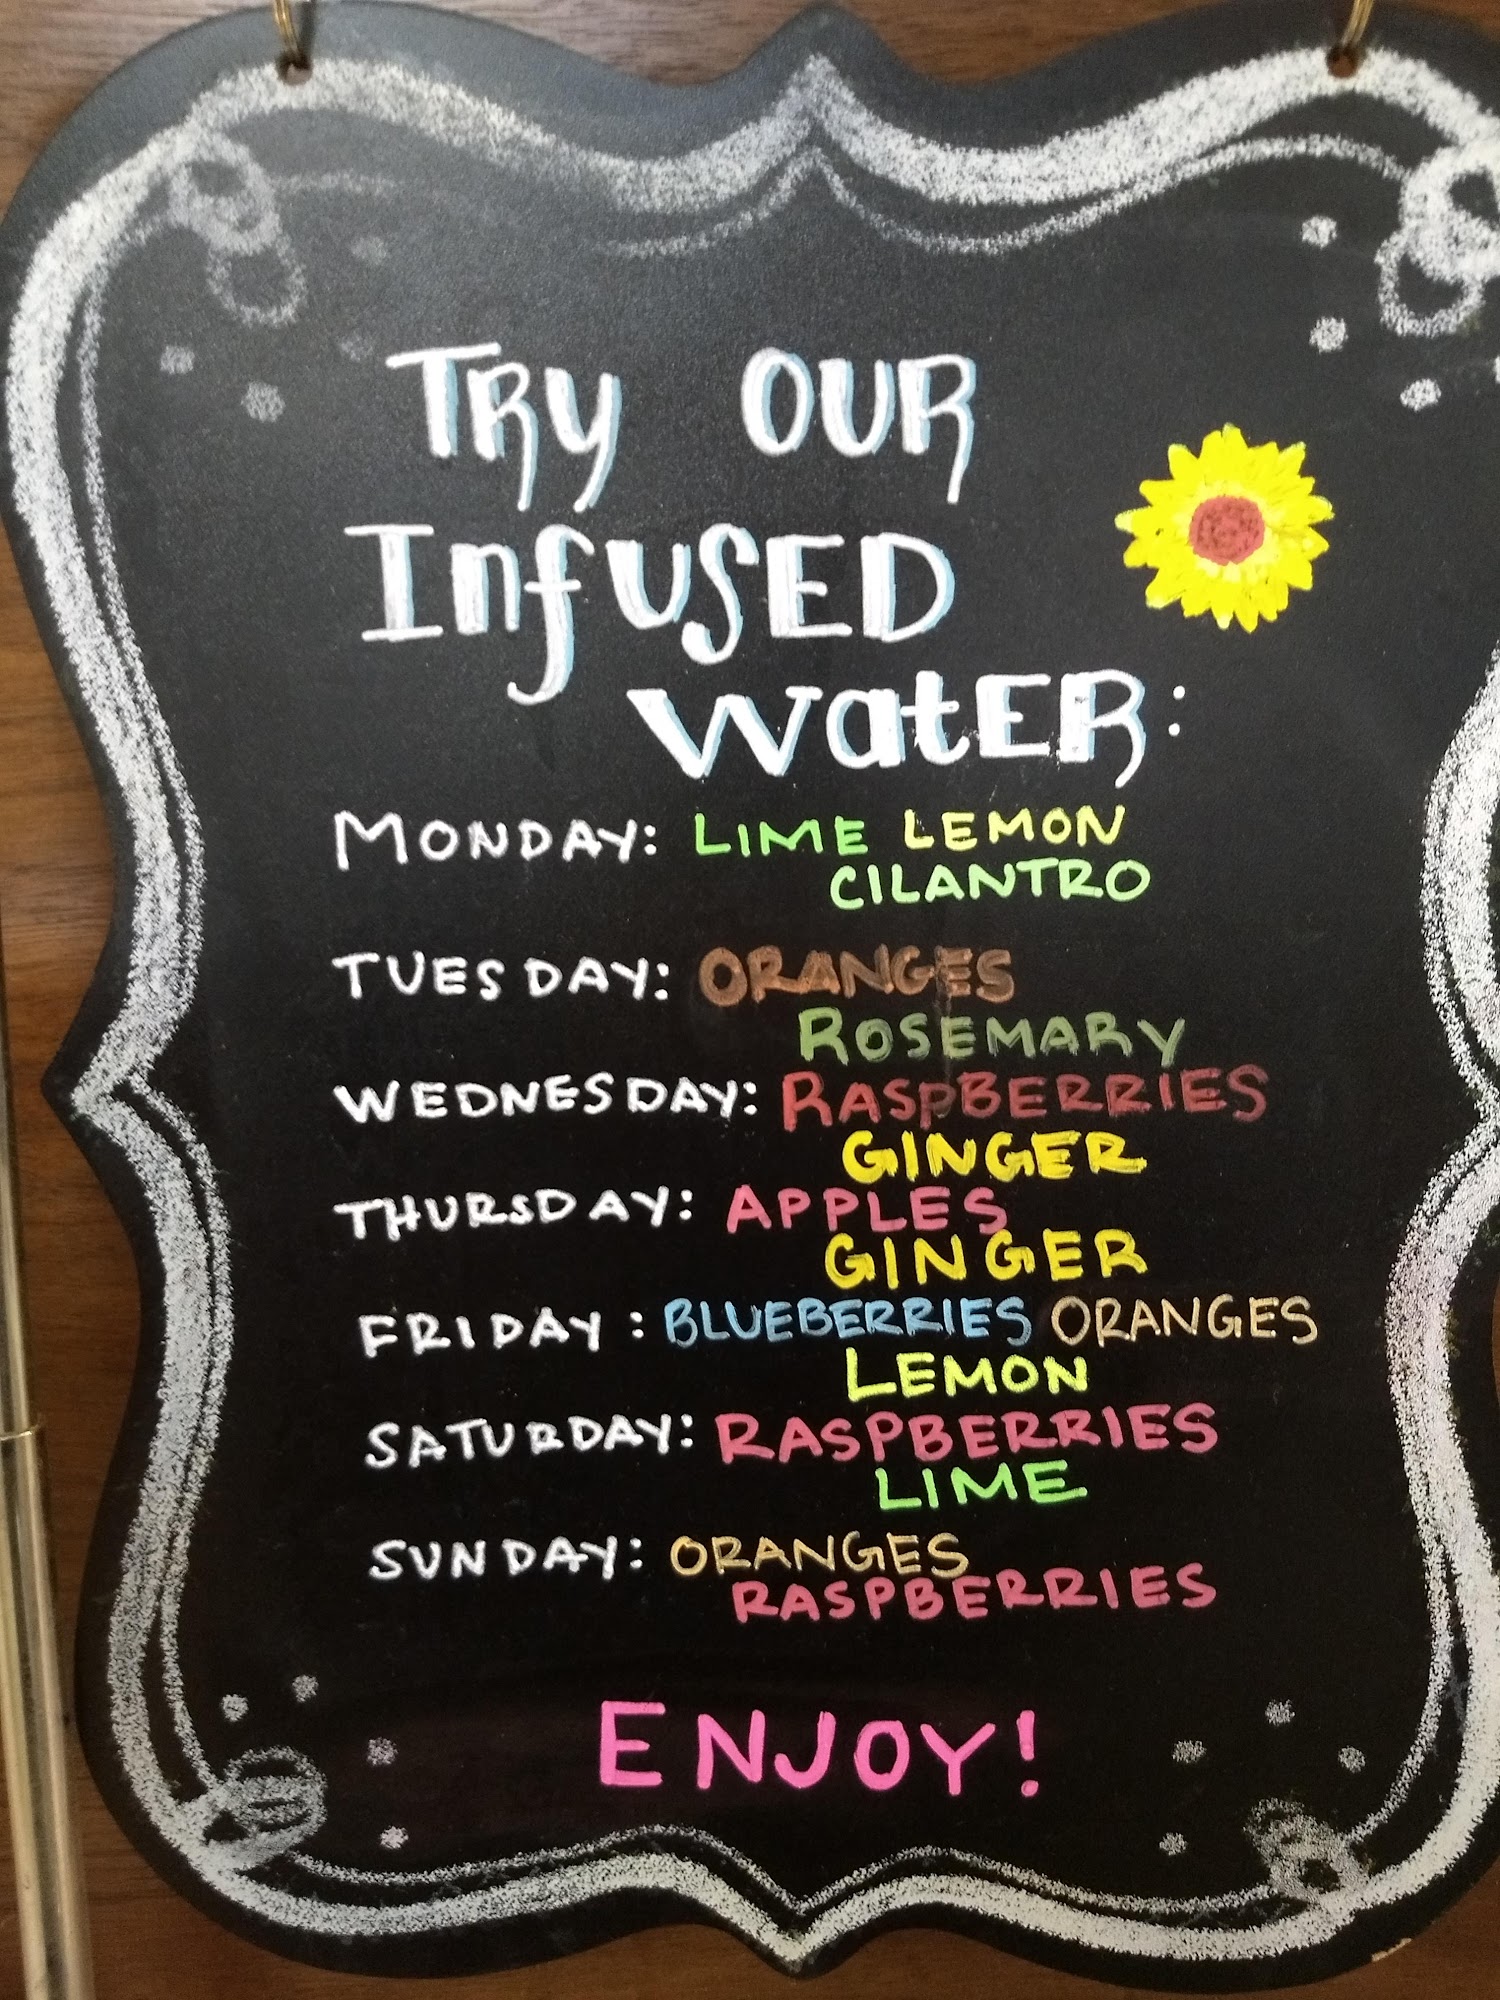 TRY OUR
InfUSED
WatER:
MONDAY: LIME LEMON
CILANTRO
TUESDAY: ORANGES
ROSEMARY
WEDNESDAY: RASPBERRIES
GINGER
THURSDAY: APPLES
GINGER
FRIDAY : BLUEBERRIES ORANGES
LEMON
SATURDAY: RASPBERRIES
LIME
SUNDAY: ORANGES
RASPBERRIES
ENJOY!